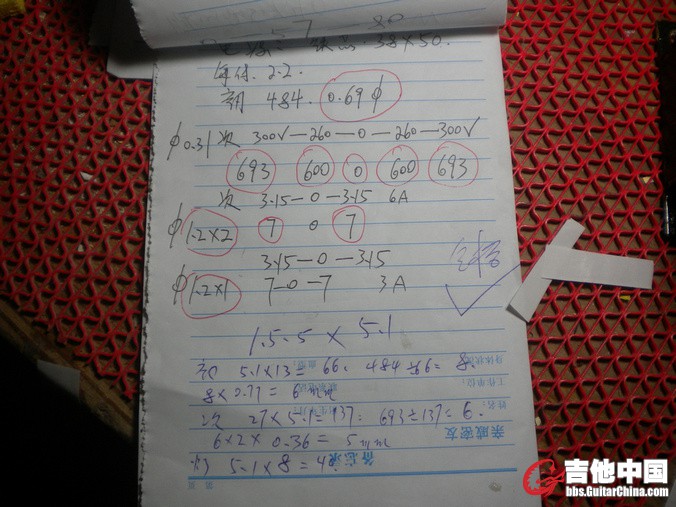 57 80
38×50.
每伏. 2.2.
初 484. 0.69 ϕ
ϕ0.31 次 300V—260—0—260—300V
693 600 0 600 693
次 3.15—0—3.15 6A
ϕ1.2×2 7 0 7
3.15—0—3.15
ϕ1.2×1 7—0—7 3A
1.5.5 × 5.1
初 5.1×13=66. 484÷66=8.
8×0.77=6mm
次 27×5.1=137. 693÷137=6.
6×2×0.36=5mm
灯 5.1×8=48
身体状况
血型:
工作单位:
姓名:
亲戚密友
备忘录
吉他中国
bbs.GuitarChina.com